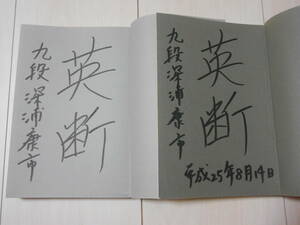 英断
九段 深浦康市
英断
九段 深浦康市
平成25年8月14日